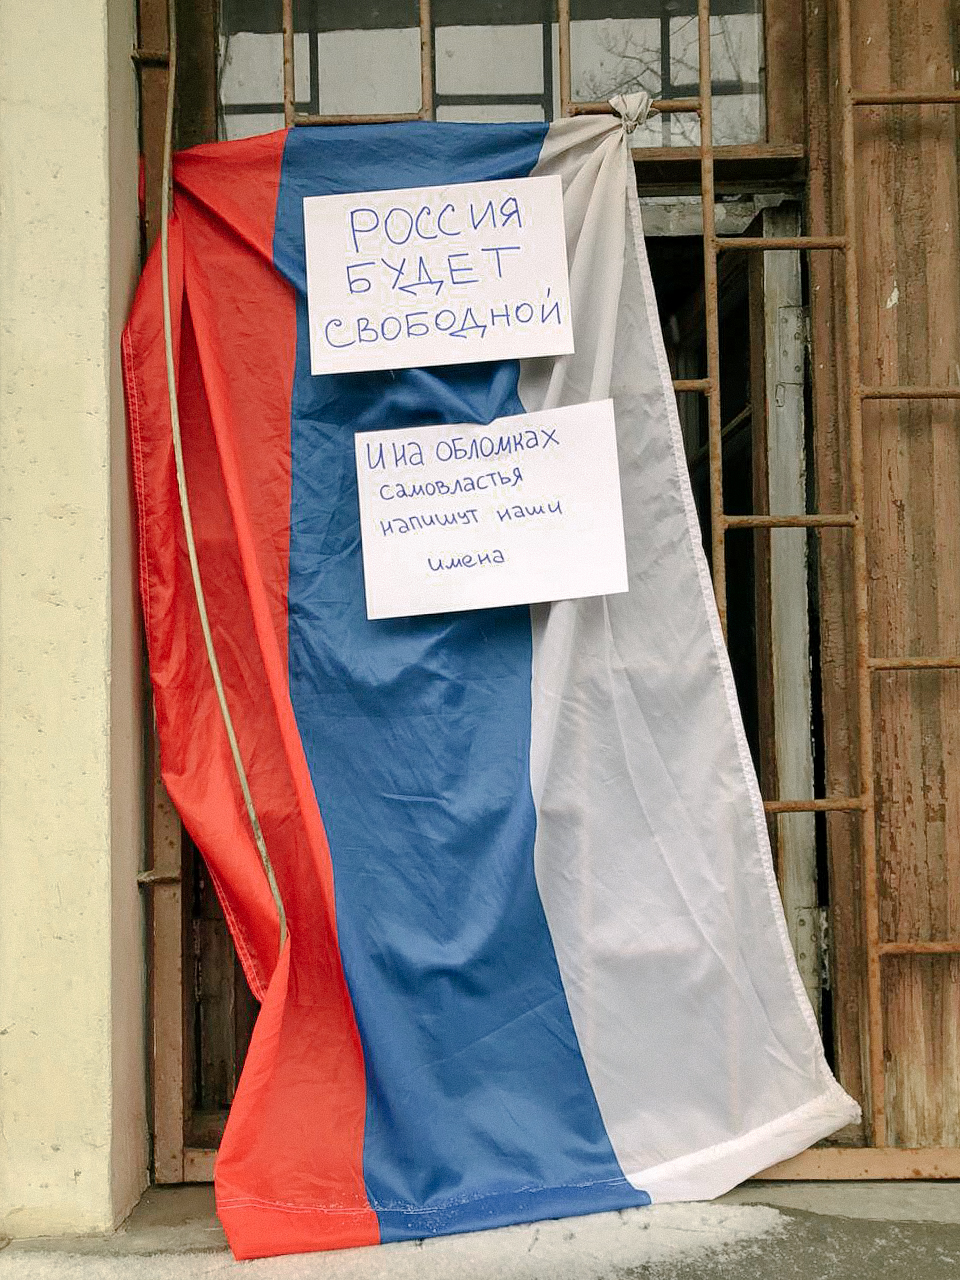 РОССИЯ
БУДЕТ
СВОБОДНОЙ
И на ОБЛОМКАХ
самовластья
напишут наши
имена